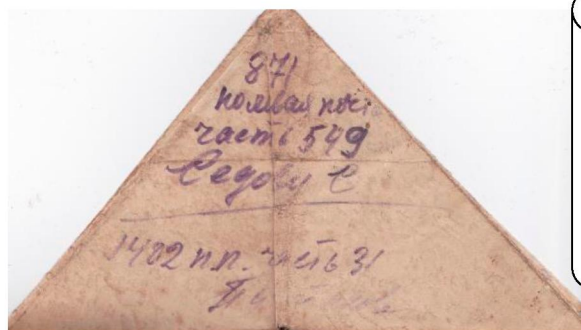 871
полевая поч
часть 549
Седову С
1402 п.п. часть 31